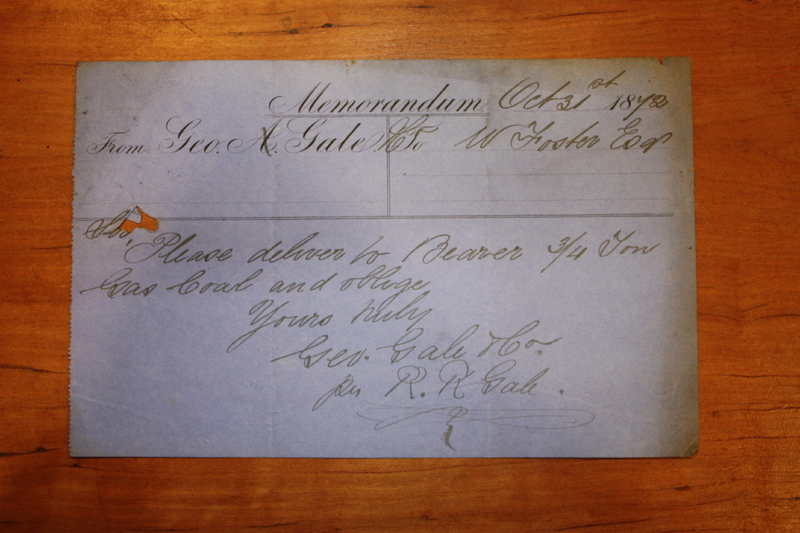 Memorandum Oct 31st 1872
From Geo. A. Gale & Co To W Foster Esqr
Sir,
Please deliver to Bearer 3/4 Ton
Gas Coal and oblige
Yours truly
Geo. Gale & Co.
per R. R Gale.